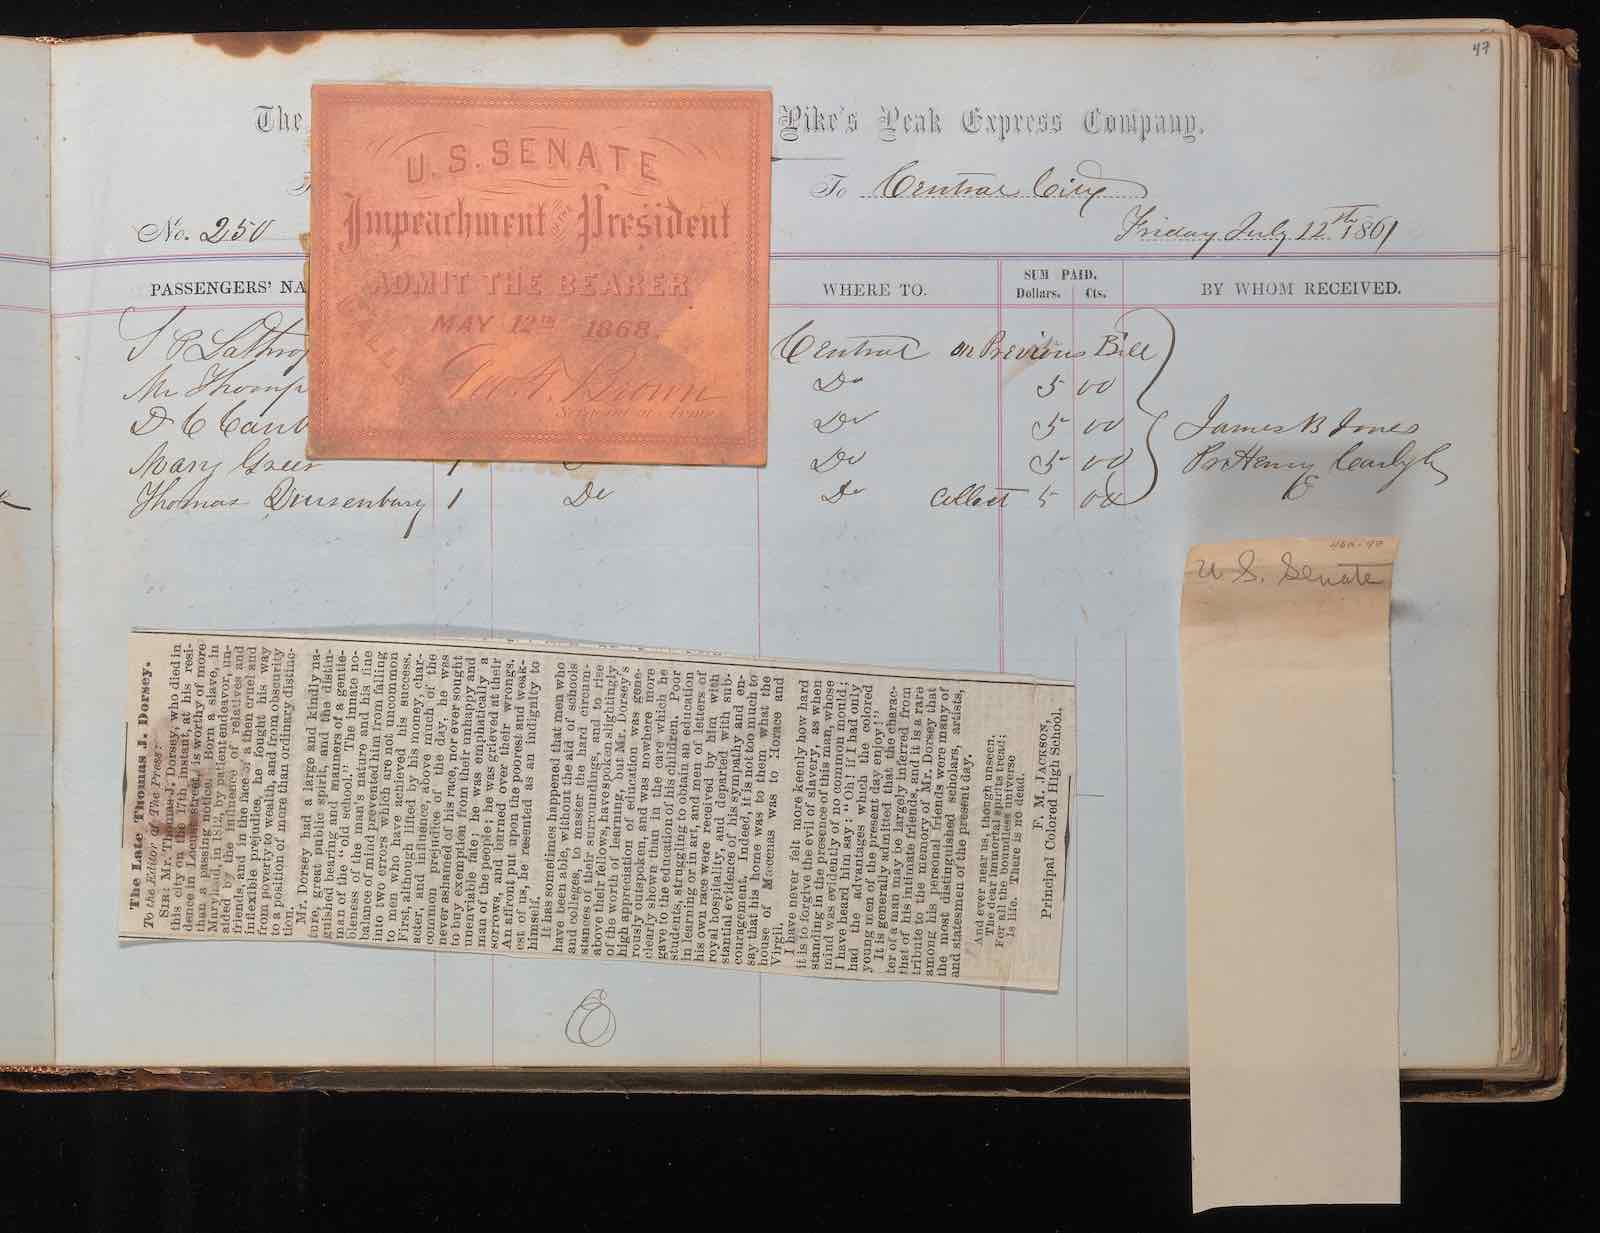 47
The Pike's Peak Express Company.
To Central City
No. 250
Friday July 12th 1861
PASSENGERS' NA
WHERE TO.
SUM PAID.
Dollars. Cts.
BY WHOM RECEIVED.
Central on Previous Bill
Mr Thomp Do 5 00
Do 5 00 James B Jones
Mary Green 1 Do 5 00 Pr Henry
Thomas 1 Do Do Collect 5 00
U.S. SENATE
Impeachment OF THE President
ADMIT THE BEARER
MAY 12TH 1868.
Geo. T. Brown
Sergeant at Arms
U S. Senate
The Late Thomas J. Dorsey.
To the Editor of The Press:
SIR: Mr. Thomas J. Dorsey, who died in
this city on the 17th instant, at his resi-
dence in Locust street, is worthy of more
than a passing notice. Born a slave, in
Maryland, in 1812, by patient endeavor, un-
aided by the influence of relatives and
friends, and in the face of a then cruel and
inflexible prejudice, he fought his way
from poverty to wealth, and from obscurity
to a position of more than ordinary distinc-
tion.
Mr. Dorsey had a large and kindly na-
ture, great public spirit, and the distin-
guished bearing and manners of a gentle-
man of the "old school." The innate no-
bleness of the man's nature and his fine
balance of mind prevented him from falling
into two errors which are not uncommon
to men who have achieved his success.
First, although lifted by his money, char-
acter, and influence, above much of the
common prejudice of the day, he was
never ashamed of his race, nor ever sought
to buy exemption from their unhappy and
unenviable fate; he was emphatically a
man of the people; he was grieved at their
sorrows, and burned over their wrongs.
An affront put upon the poorest and weak-
est of us, he resented as an indignity to
himself.
It has sometimes happened that men who
have been able, without the aid of schools
and colleges, to master the hard circum-
stances of their surroundings, and to rise
above their fellows, have spoken slightingly
of the worth of learning, but Mr. Dorsey's
high appreciation of education was gene-
rously outspoken, and was nowhere more
clearly shown than in the care which he
gave to the education of his children. Poor
students, struggling to obtain an education
in learning or in art, and men of letters of
his own race were received by him with
royal hospitality, and departed with sub-
stantial evidence of his sympathy and en-
couragement. Indeed, it is not too much to
say that his home was to them what the
house of Maecenas was to Horace and
Virgil.
I have never felt more keenly how hard
it is to forgive the evil of slavery, as when
standing in the presence of this man, whose
mind was evidently of no common mould;
I have heard him say: "Oh! if I had only
had the advantages which the colored
young men of the present day enjoy!"
It is generally admitted that the charac-
ter of a man may be largely inferred from
that of his intimate friends, and it is a rare
tribute to the memory of Mr. Dorsey that
among his personal friends were many of
the most distinguished scholars, artists,
and statesmen of the present day.
And ever near us, though unseen,
The dear immortal spirits tread;
For all the boundless universe
Is life. There is no dead.
F. M. JACKSON,
Principal Colored High School.